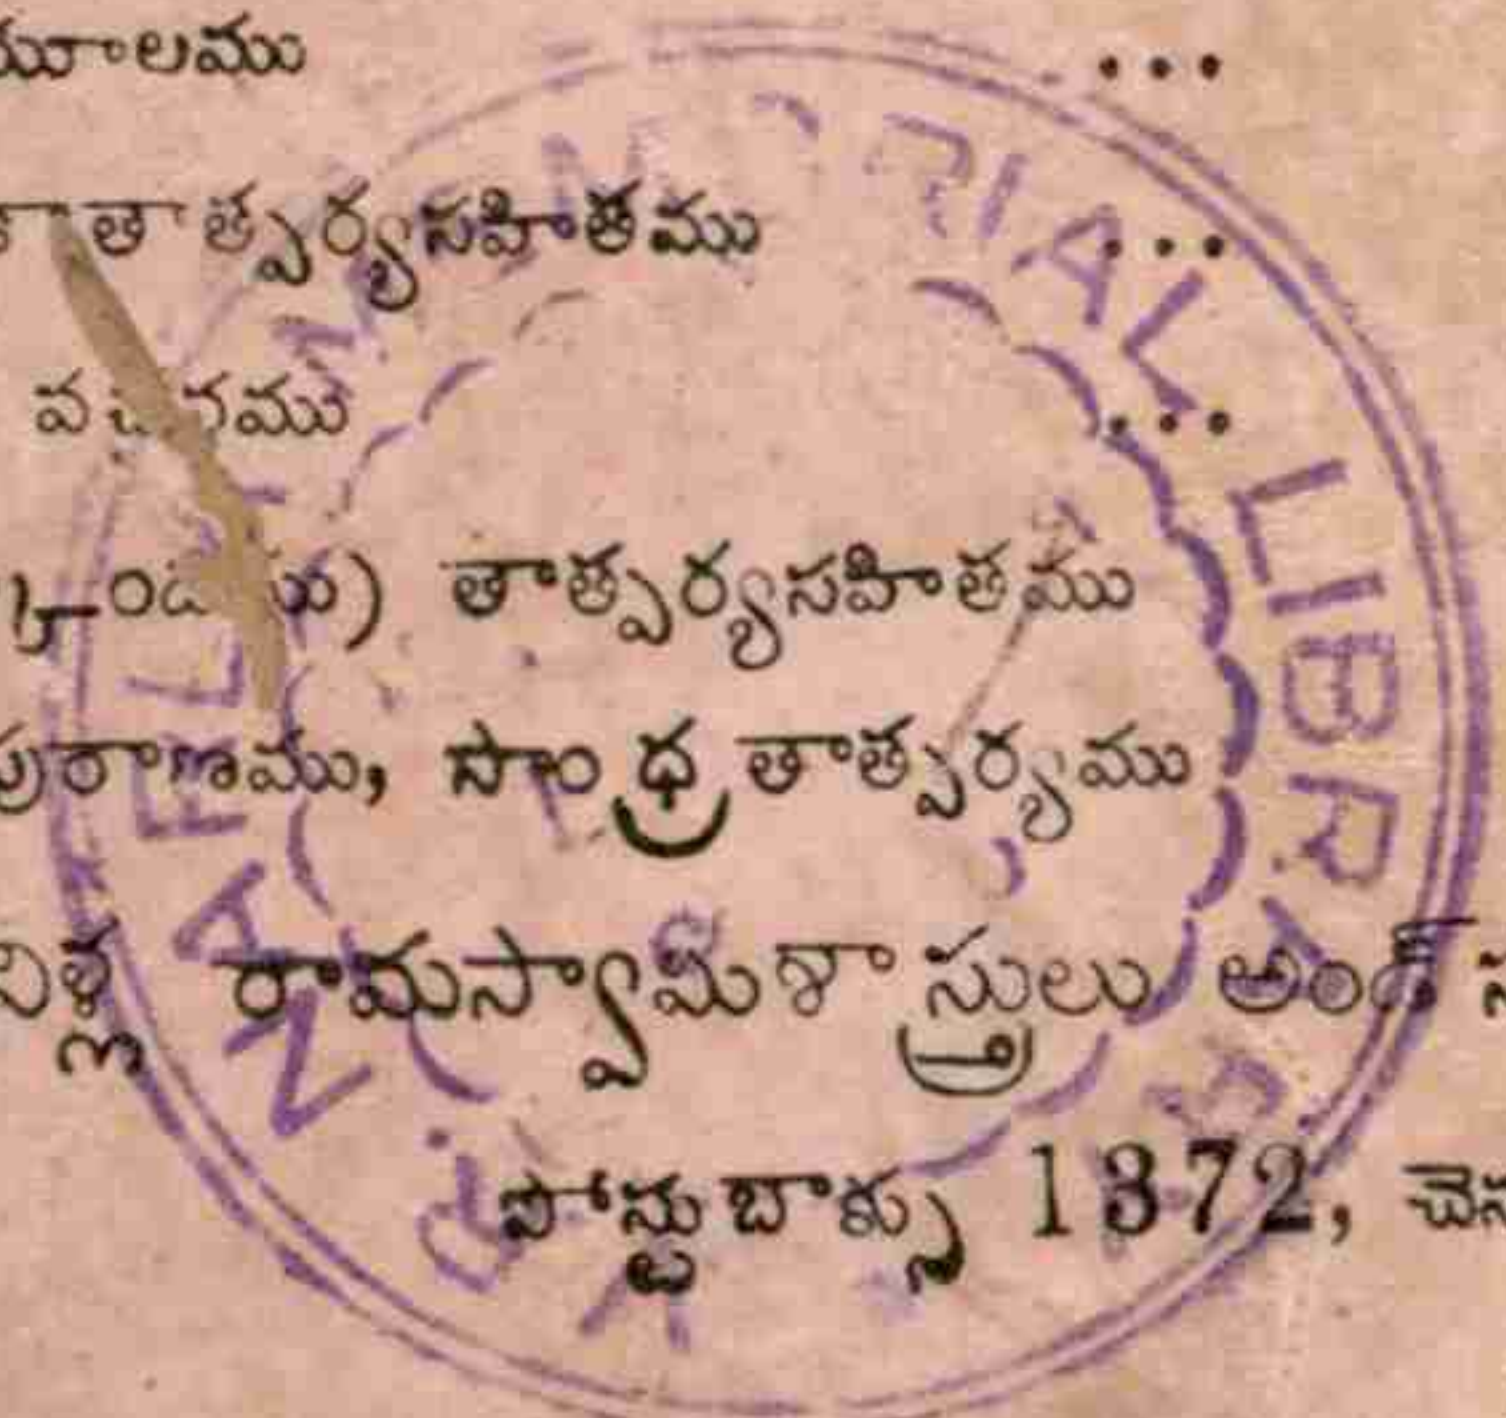 మూలము ...
తాత్పర్యసహితము ...
వచనము ...
తాత్పర్యసహితము
పురాణము, సాంధ్ర తాత్పర్యము
రామస్వామిశాస్త్రులు అండ్
పోస్టుబాక్సు 1372,
MEMORIAL LIBRARY